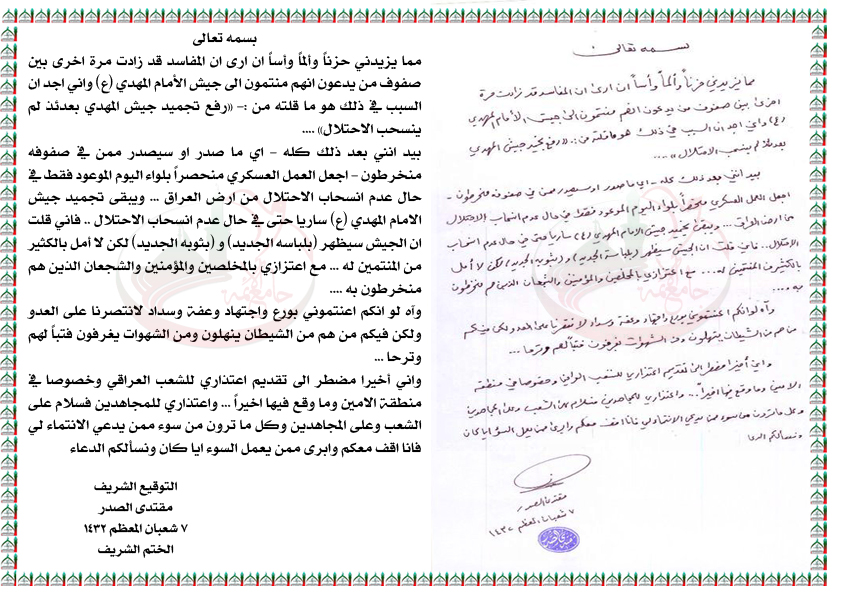 بسمه تعالى
مما يزيدني حزناً وألماً وأساً ان ارى ان المفاسد قد زادت مرة اخرى بين
صفوف من يدعون انهم منتمون الى جيش الأمام المهدي (ع) واني اجد ان
السبب في ذلك هو ما قلته من :- «رفع تجميد جيش المهدي بعدئذ لم
ينسحب الاحتلال» ....
بيد انني بعد ذلك كله - اي ما صدر او سيصدر ممن في صفوفه
منخرطون - اجعل العمل العسكري منحصراً بلواء اليوم الموعود فقط في
حال عدم انسحاب الاحتلال من ارض العراق ... ويبقى تجميد جيش
الامام المهدي (ع) ساريا حتى في حال عدم انسحاب الاحتلال .. فأني قلت
ان الجيش سيظهر (بلباسه الجديد) و (بثوبه الجديد) لكن لا أمل بالكثير
من المنتمين له ... مع اعتزازي بالمخلصين والمؤمنين والشجعان الذين هم
منخرطون به ....
وآه لو انكم اعنتموني بورع واجتهاد وعفة وسداد لانتصرنا على العدو
ولكن فيكم من هم من الشيطان ينهلون ومن الشهوات يغرفون فتباً لهم
وترحا ...
واني أخيرا مضطر الى تقديم اعتذاري للشعب العراقي وخصوصا في
منطقة الامين وما وقع فيها اخيراً ... واعتذاري للمجاهدين فسلام على
الشعب وعلى المجاهدين وكل ما ترون من سوء ممن يدعي الانتماء لي
فانا اقف معكم وابرى ممن يعمل السوء ايا كان ونسألكم الدعاء
التوقيع الشريف
مقتدى الصدر
٧ شعبان المعظم ١٤٣٢
الختم الشريف
بسمه تعالى
مما يزيدني حزناً وألماً وأساً ان ارى ان المفاسد قد زادت مرة
اخرى بين صفوف من يدعون انهم منتمون الى جيش الأمام المهدي
(ع) واني اجد ان السبب في ذلك هو ما قلته من :- «رفع تجميد جيش المهدي
بعدئذ لم ينسحب الاحتلال» ....
بيد انني بعد ذلك كله - اي ما صدر او سيصدر ممن في صفوفه منخرطون -
اجعل العمل العسكري منحصراً بلواء اليوم الموعود فقط في حال عدم انسحاب الاحتلال
من ارض العراق ... ويبقى تجميد جيش الامام المهدي (ع) ساريا حتى في حال عدم انسحاب
الاحتلال .. فأني قلت ان الجيش سيظهر (بلباسه الجديد) و (بثوبه الجديد) لكن لا أمل
بالكثير من المنتمين له ... مع اعتزازي بالمخلصين والمؤمنين والشجعان الذين هم منخرطون
به ....
وآه لو انكم اعنتموني بورع واجتهاد وعفة وسداد لانتصرنا على العدو ولكن فيكم
من هم من الشيطان ينهلون ومن الشهوات يغرفون فتباً لهم وترحا ...
واني أخيرا مضطر الى تقديم اعتذاري للشعب العراقي وخصوصا في منطقة
الامين وما وقع فيها اخيراً ... واعتذاري للمجاهدين فسلام على الشعب وعلى المجاهدين
وكل ما ترون من سوء ممن يدعي الانتماء لي فانا اقف معكم وابرى ممن يعمل السوء ايا كان
ونسألكم الدعاء
مقتدى الصدر
٧ شعبان المعظم ١٤٣٢